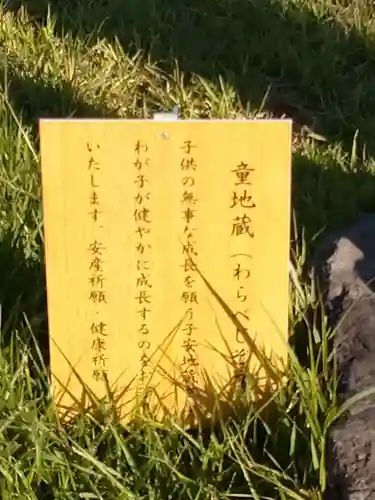 童地蔵（わらべじぞう
子供の無事な成長を願う子安地蔵
わが子が健やかに成長するのを
いたします。安産祈願・健康祈願